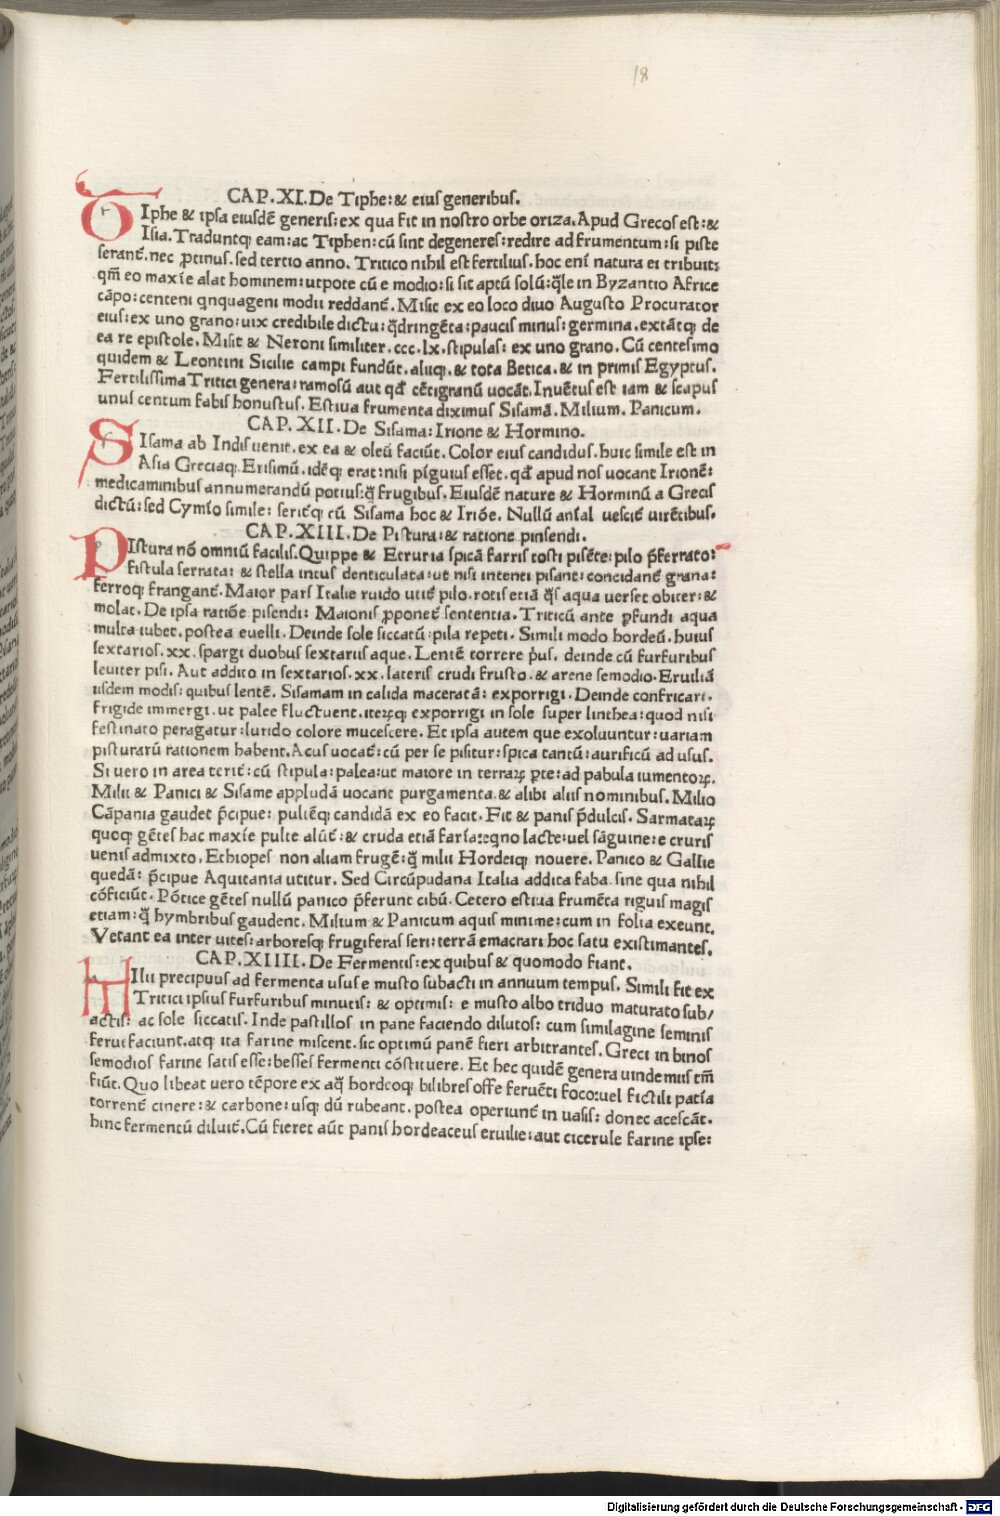 18
CAP.XI.De Tiphe:& eius generibus.
TIphe & ipsa eiusdē generis:ex qua fit in nostro orbe oriza.Apud Grecos est:&
Isia.Traduntq; eam:ac Tiphen:cū sint degeneres:redire ad frumentum:si piste
serant̄.nec ꝓtinus.sed tertio anno.Tritico nihil est fertilius.hoc eni natura ei tribuit:
qm̄ eo maxie alat hominem:utpote cū e modio:si sit aptū solū:q̄le in Byzantio Africe
cāpo:centeni qnquageni modii reddant̄.Misit ex eo loco diuo Augusto Procurator
eius:ex uno grano:uix credibile dictu:q̄dringēta:paucis minus:germina.extātq; de
ea re epistole.Misit & Neroni similiter.ccc.lx.stipulas:ex uno grano.Cū centesimo
quidem & Leontini Sicilie campi fundūt.aliiq;.& tota Betica.& in primis Egyptus.
Fertilissima Tritici genera:ramosū aut qd̄ cētigranū uocāt.Inuētus est iam & scapus
unus centum fabis honustus.Estiua frumenta diximus Sisamā.Milium.Panicum.
CAP.XII.De Sisama:Irione & Hormino.
SIsama ab Indis uenit.ex ea & oleū faciūt.Color eius candidus.huic simile est in
Asia Greciaq;.Erisimū.idēq; erat:nisi pīguius esset.qd̄ apud nos uocant Irionē:
medicaminibus annumerandū potius:q̄ frugibus.Eiusdē nature & Horminū a Grecis
dictū:sed Cymīo simile:serit̄q; cū Sisama hoc & Iriōe.Nullū anīal uescit̄ uirētibus.
CAP.XIII.De Pistura:& ratione pinsendi.
PIstura nō omniū facilis.Quippe & Etruria spicā farris tosti pisēte:pilo p̄ferrato:
fistula serrata:& stella intus denticulata:ut nisi intenti pisant:concidant̄ grana:
ferroq; frangant̄.Maior pars Italie ruido utit̄ pilo.rotis etiā q̄s aqua uerset obiter:&
molat.De ipsa ratiōe pisendi:Maionis ꝓponet̄ sententia.Triticū ante ꝓfundi aqua
multa iubet.postea euelli.Deinde sole siccatū:pila repeti.Simili modo hordeū.huius
sextarios.xx.spargi duobus sextariis aque.Lentē torrere p̄us.deinde cū furfuribus
leuiter pisi.Aut addito in sextarios.xx.lateris crudi frusto.& arene semodio.Eruiliā
iisdem modis:quibus lentē.Sisamam in calida maceratā:exporrigi.Deinde confricari.
frigide immergi.ut palee fluctuent.iteꝝq; exporrigi in sole super linthea:quod nisi
festinato peragatur:lurido colore mucescere.Et ipsa autem que exoluuntur:uariam
pisturarū rationem habent.Acus uocat̄:cū per se pisitur:spica tantū:aurificū ad usus.
Si uero in area terit̄:cū stipula:palea:ut maiore in terraꝝ ꝑte:ad pabula iumentoꝝ.
Milii & Panici & Sisame appludā uocant purgamenta.& alibi aliis nominibus.Milio
Cāpania gaudet p̄cipue:pultēq; candidā ex eo facit.Fit & panis p̄dulcis.Sarmataꝝ
quoq; gētes hac maxie pulte alūt̄:& cruda etiā farīa:eqno lacte:uel sāguine:e cruris
uenis admixto.Ethiopes non aliam frugē:q̄ milii Hordeiq; nouere.Panico & Gallie
quedā:p̄cipue Aquitania utitur.Sed Circūpadana Italia addita faba.sine qua nihil
cōficiūt.Pōtice gētes nullū panico p̄ferunt cibū.Cetero estiua frumēta riguis magis
etiam:q̄ hymbribus gaudent.Milium & Panicum aquis minime:cum in folia exeunt.
Vetant ea inter uites:arboresq; frugiferas seri:terrā emacrari hoc satu existimantes.
CAP.XIIII.De Fermentis:ex quibus & quomodo fiant.
MIlii precipuus ad fermenta usus e musto subacti in annuum tempus.Simili fit ex
Tritici ipsius furfuribus minutis:& optimis:e musto albo triduo maturato sub/
actis:ac sole siccatis.Inde pastillos in pane faciendo dilutos:cum similagine seminis
feruefaciunt.atq; ita farine miscent.sic optimū panē fieri arbitrantes.Greci in binos
semodios farine satis esse:besses fermenti cōstituere.Et hec quidē genera uindemiis tm̄
fiūt.Quo libeat uero tēpore ex aq̄ hordeoq; bilibres offe feruēti foco:uel fictili patīa
torrent̄ cinere:& carbone:usq; dū rubeant.postea operiunt̄ in uasis:donec acescāt.
hinc fermentū diluit̄.Cū fieret aūt panis hordeaceus eruilie:aut cicerule farine ipse:
Digitalisierung gefördert durch die Deutsche Forschungsgemeinschaft - DFG